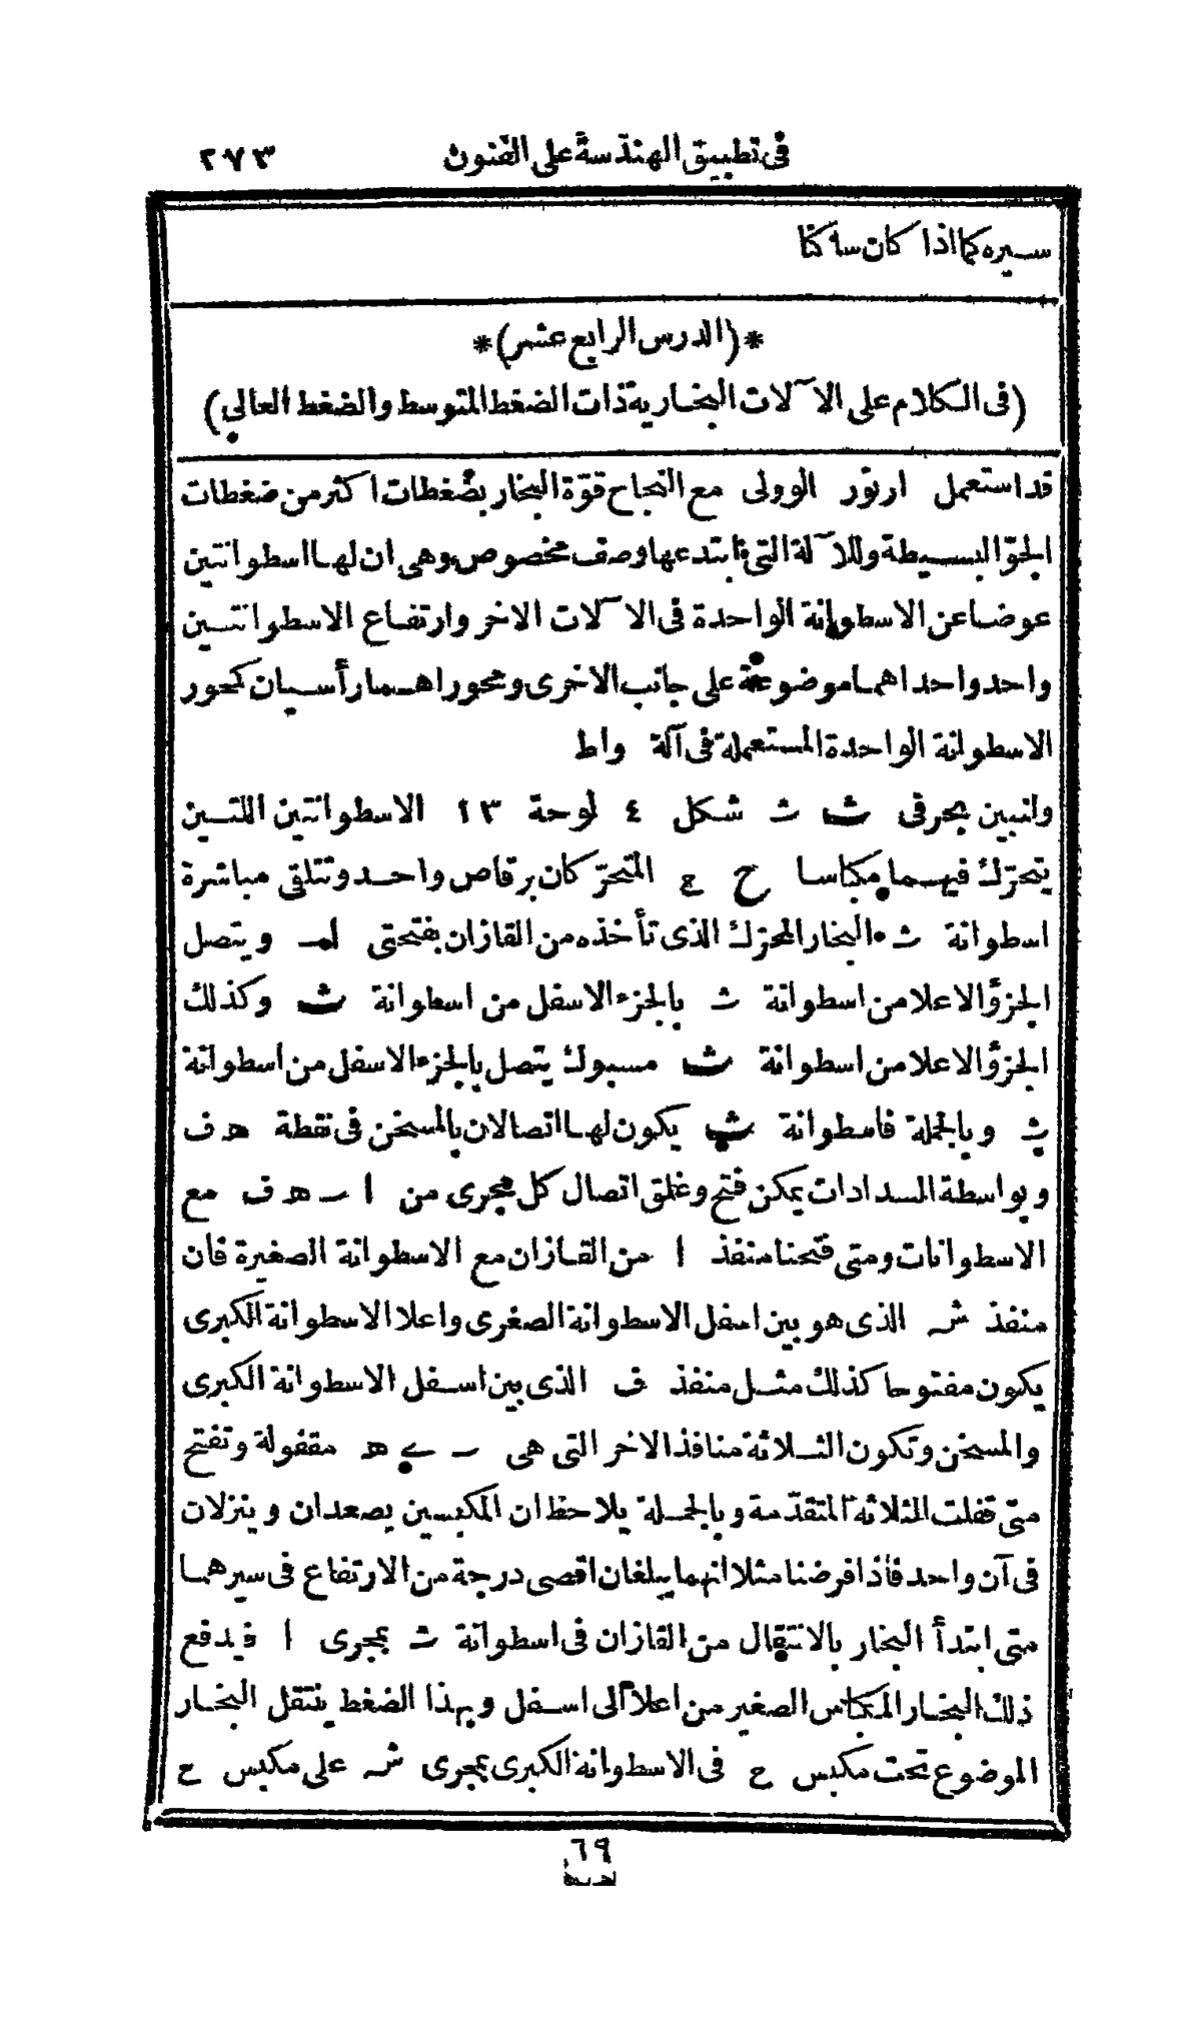 فى تطبيق الهندسة على الفنون ٢٧٣
سيره كما اذا كان ساكنا
*(الدرس الرابع عشر)*
(فى الكلام على الآلات البخارية ذات الضغط المتوسط والضغط العالى)
قد استعمل ارتور الوولى مع النجاح قوّة البخار بضغطات اكثر من ضغطات
الجوّ البسيطة وللآلة التى ابتدعها وصف مخصوص وهى ان لها اسطوانتين
عوضا عن الاسطوانة الواحدة فى الالآت الاخر وارتفاع الاسطوانتين
واحد واحداهما موضوعة على جانب الاخرى ومحوراهما رأسيان كمحور
الاسطوانة الواحدة المستعملة فى آلة واط
ولنبين بحرفى ث ث شكل ٤ لوحة ١٣ الاسطوانتين اللتين
يتحرّك فيهما مكباسا ح ح المتحرّكان برقاص واحد وتتلقى مباشرة
اسطوانة ث البخار المحرّك الذى تأخذه من القازان بفتحتى ا ب ويتصل
الجزؤ الاعلا من اسطوانة ث بالجزء الاسفل من اسطوانة ث وكذلك
الجزؤ الاعلا من اسطوانة ث مسبوك يتصل بالجزء الاسفل من اسطوانة
ث وبالجملة فاسطوانة ث يكون لها اتصالان بالمسخن فى نقطة ه ف
وبواسطة السدادات يمكن فتح وغلق اتصال كل مجرى من ا ب ه ف مع
الاسطوانات ومتى فتحنا منفذ ا من القازان مع الاسطوانة الصغيرة فان
منفذ ش الذى هو بين اسفل الاسطوانة الصغرى واعلا الاسطوانة الكبرى
يكون مفتوحا كذلك مثل منفذ ف الذى بين اسفل الاسطوانة الكبرى
والمسخن وتكون الثلاثة منافذ الاخر التى هى ب ے ه مقفولة وتفتح
متى قفلت الثلاثة المتقدّمة وبالجملة يلاحظ ان المكبسين يصعدان وينزلان
فى آن واحد فاذا فرضنا مثلا انهما يبلغان اقصى درجة من الارتفاع فى سيرهما
متى ابتدأ البخار بالانتقال من القازان فى اسطوانة ث بمجرى ا فيدفع
ذلك البخار المكباس الصغير من اعلا الى اسفل وبهذا الضغط ينتقل البخار
الموضوع تحت مكبس ح فى الاسطوانة الكبرى بمجرى ش على مكبس ح
٦٩